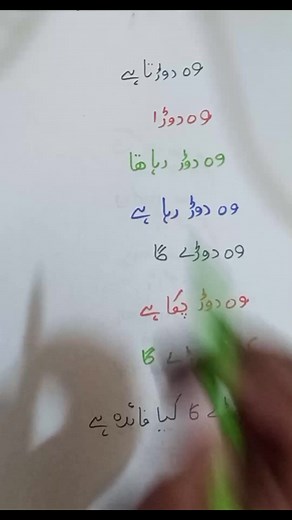 وہ دوڑتا ہے
وہ دوڑا
وہ دوڑ رہا تھا
وہ دوڑ رہا ہے
وہ دوڑے گا
وہ دوڑ چکا ہے
گا
کا کیا فائدہ ہے